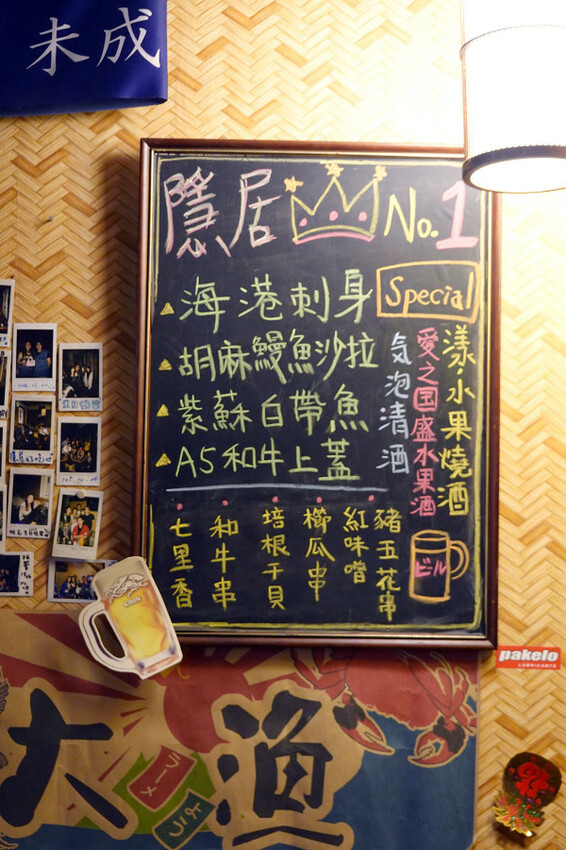 未成
隱居 No.1
海港刺身
胡麻鰻魚沙拉
紫蘇白帶魚
A5和牛上蓋
Special
漾·水果燒酒
愛之国盛水果酒
気泡清酒
豬五花串
紅味噌
櫛瓜串
培根干貝
和牛串
七里香
ビール
KIRIN
pakelo
LUBRICANTS
大漁
ラーメ